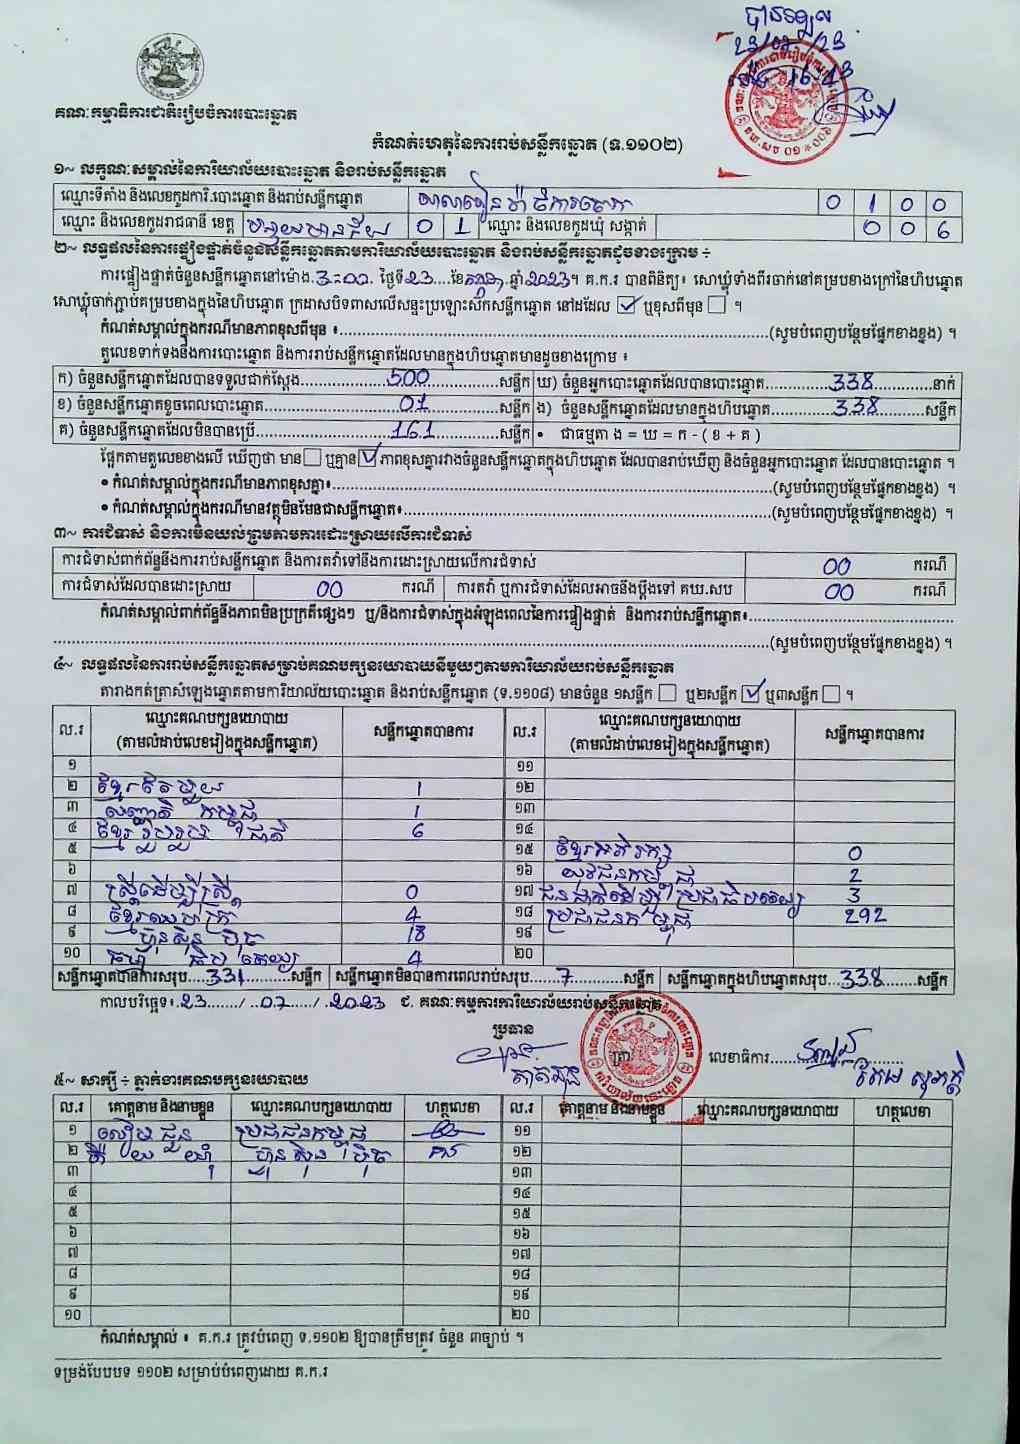 បានទទួល
23/07/23
16:43
គណៈកម្មាធិការជាតិរៀបចំការបោះឆ្នោត
កំណត់ហេតុនៃការរាប់សន្លឹកឆ្នោត (ទ.១១០២)
១~ លក្ខណៈសម្គាល់នៃការិយាល័យបោះឆ្នោត និងរាប់សន្លឹកឆ្នោត
ឈ្មោះទីតាំង និងលេខកូដការិ.បោះឆ្នោត និងរាប់សន្លឹកឆ្នោត 0 1 0 0
ឈ្មោះ និងលេខកូដរាជធានី ខេត្ត បន្ទាយមានជ័យ 0 1 ឈ្មោះ និងលេខកូដឃុំ សង្កាត់ 0 0 6
២~ លទ្ធផលនៃការផ្ទៀងផ្ទាត់ចំនួនសន្លឹកឆ្នោតតាមការិយាល័យបោះឆ្នោត និងរាប់សន្លឹកឆ្នោតដូចខាងក្រោម ÷
ការផ្ទៀងផ្ទាត់ចំនួនសន្លឹកឆ្នោតនៅម៉ោង.3:00. ថ្ងៃទី23....ខែកក្កដា.ឆ្នាំ2023។ គ.ក.រ បានពិនិត្យ៖ សោឃ្លុំទាំងពីរចាក់នៅគម្របខាងក្រៅនៃហិបឆ្នោត
សោឃ្លុំចាក់ភ្ជាប់គម្របខាងក្នុងនៃហិបឆ្នោត ក្រដាសបិទពាសលើសន្ទះប្រឡោះស៊កសន្លឹកឆ្នោត នៅដដែល ☑ ឬខុសពីមុន ☐ ។
កំណត់សម្គាល់ក្នុងករណីមានភាពខុសពីមុន ៖..........(សូមបំពេញបន្ថែមផ្នែកខាងខ្នង) ។
តួលេខទាក់ទងនឹងការបោះឆ្នោត និងការរាប់សន្លឹកឆ្នោតដែលមានក្នុងហិបឆ្នោតមានដូចខាងក្រោម ៖
ក) ចំនួនសន្លឹកឆ្នោតដែលបានទទួលជាក់ស្តែង..........500..........សន្លឹក ឃ) ចំនួនអ្នកបោះឆ្នោតដែលបានបោះឆ្នោត..........338..........នាក់
ខ) ចំនួនសន្លឹកឆ្នោតខូចពេលបោះឆ្នោត..........01..........សន្លឹក ង) ចំនួនសន្លឹកឆ្នោតដែលមានក្នុងហិបឆ្នោត..........338..........សន្លឹក
គ) ចំនួនសន្លឹកឆ្នោតដែលមិនបានប្រើ..........161..........សន្លឹក • ជាធម្មតា ង = ឃ = ក - ( ខ + គ )
ផ្អែកតាមតួលេខខាងលើ ឃើញថា មាន ☐ ឬគ្មាន ☑ ភាពខុសគ្នារវាងចំនួនសន្លឹកឆ្នោតក្នុងហិបឆ្នោត ដែលបានរាប់ឃើញ និងចំនួនអ្នកបោះឆ្នោត ដែលបានបោះឆ្នោត ។
• កំណត់សម្គាល់ក្នុងករណីមានភាពខុសគ្នា៖..........(សូមបំពេញបន្ថែមផ្នែកខាងខ្នង) ។
• កំណត់សម្គាល់ក្នុងករណីមានវត្ថុមិនមែនជាសន្លឹកឆ្នោត៖..........(សូមបំពេញបន្ថែមផ្នែកខាងខ្នង) ។
៣~ ការជំទាស់ និងការមិនយល់ព្រមតាមការដោះស្រាយលើការជំទាស់
ការជំទាស់ពាក់ព័ន្ធនឹងការរាប់សន្លឹកឆ្នោត និងការតវ៉ាទៅនឹងការដោះស្រាយលើការជំទាស់ 00 ករណី
ការជំទាស់ដែលបានដោះស្រាយ 00 ករណី ការតវ៉ា ឬការជំទាស់ដែលអាចនឹងប្តឹងទៅ គឃ.សប 00 ករណី
កំណត់សម្គាល់ពាក់ព័ន្ធនឹងភាពមិនប្រក្រតីផ្សេងៗ ឬ/និងការជំទាស់ក្នុងអំឡុងពេលនៃការផ្ទៀងផ្ទាត់ និងការរាប់សន្លឹកឆ្នោត៖..........
..........(សូមបំពេញបន្ថែមផ្នែកខាងខ្នង) ។
៤~ លទ្ធផលនៃការរាប់សន្លឹកឆ្នោតសម្រាប់គណបក្សនយោបាយនីមួយៗតាមការិយាល័យរាប់សន្លឹកឆ្នោត
តារាងកត់ត្រាសំឡេងឆ្នោតតាមការិយាល័យបោះឆ្នោត និងរាប់សន្លឹកឆ្នោត (ទ.១១០៨) មានចំនួន ១សន្លឹក ☐ ឬ២សន្លឹក ☑ ឬ៣សន្លឹក ☐ ។
ល.រ ឈ្មោះគណបក្សនយោបាយ សន្លឹកឆ្នោតបានការ ល.រ ឈ្មោះគណបក្សនយោបាយ សន្លឹកឆ្នោតបានការ
(តាមលំដាប់លេខរៀងក្នុងសន្លឹកឆ្នោត) (តាមលំដាប់លេខរៀងក្នុងសន្លឹកឆ្នោត)
១ ១១
២ ខ្មែរតែមួយ 1 ១២
៣ សញ្ជាតិ កម្ពុជា 1 ១៣
៤ ខ្មែរ រួបរួម ជាតិ 6 ១៤
៥ ១៥ ខ្មែរអភិរក្ស 0
៦ ១៦ យុវជនកម្ពុជា 2
៧ ស្រ្តីដើម្បីស្រ្តី 0 ១៧ ជនជាតិដើម្បីប្រជាធិបតេយ្យ 3
៨ 4 ១៨ ប្រជាជនកម្ពុជា 292
៩ ហ្វ៊ុនស៊ិនប៉ិច 18 ១៩
១០ 4 ២០
សន្លឹកឆ្នោតបានការសរុប....331.....សន្លឹក សន្លឹកឆ្នោតមិនបានការពេលរាប់សរុប.....7.....សន្លឹក សន្លឹកឆ្នោតក្នុងហិបឆ្នោតសរុប...338.....សន្លឹក
កាលបរិច្ឆេទ៖.23....../.07....../.2023 ជ. គណៈកម្មការការិយាល័យរាប់សន្លឹកឆ្នោត
ប្រធាន
ត្រា លេខាធិការ..........
៥~ សាក្សី ÷ ភ្នាក់ងារគណបក្សនយោបាយ
ល.រ គោត្តនាម និងនាមខ្លួន ឈ្មោះគណបក្សនយោបាយ ហត្ថលេខា ល.រ គោត្តនាម និងនាមខ្លួន ឈ្មោះគណបក្សនយោបាយ ហត្ថលេខា
១ ប្រជាជនកម្ពុជា ១១
២ ហ្វ៊ុនស៊ិនប៉ិច ១២
៣ ១៣
៤ ១៤
៥ ១៥
៦ ១៦
៧ ១៧
៨ ១៨
៩ ១៩
១០ ២០
កំណត់សម្គាល់ ៖ គ.ក.រ ត្រូវបំពេញ ទ.១១០២ ឱ្យបានត្រឹមត្រូវ ចំនួន ៣ច្បាប់ ។
ទម្រង់បែបបទ ១១០២ សម្រាប់បំពេញដោយ គ.ក.រ